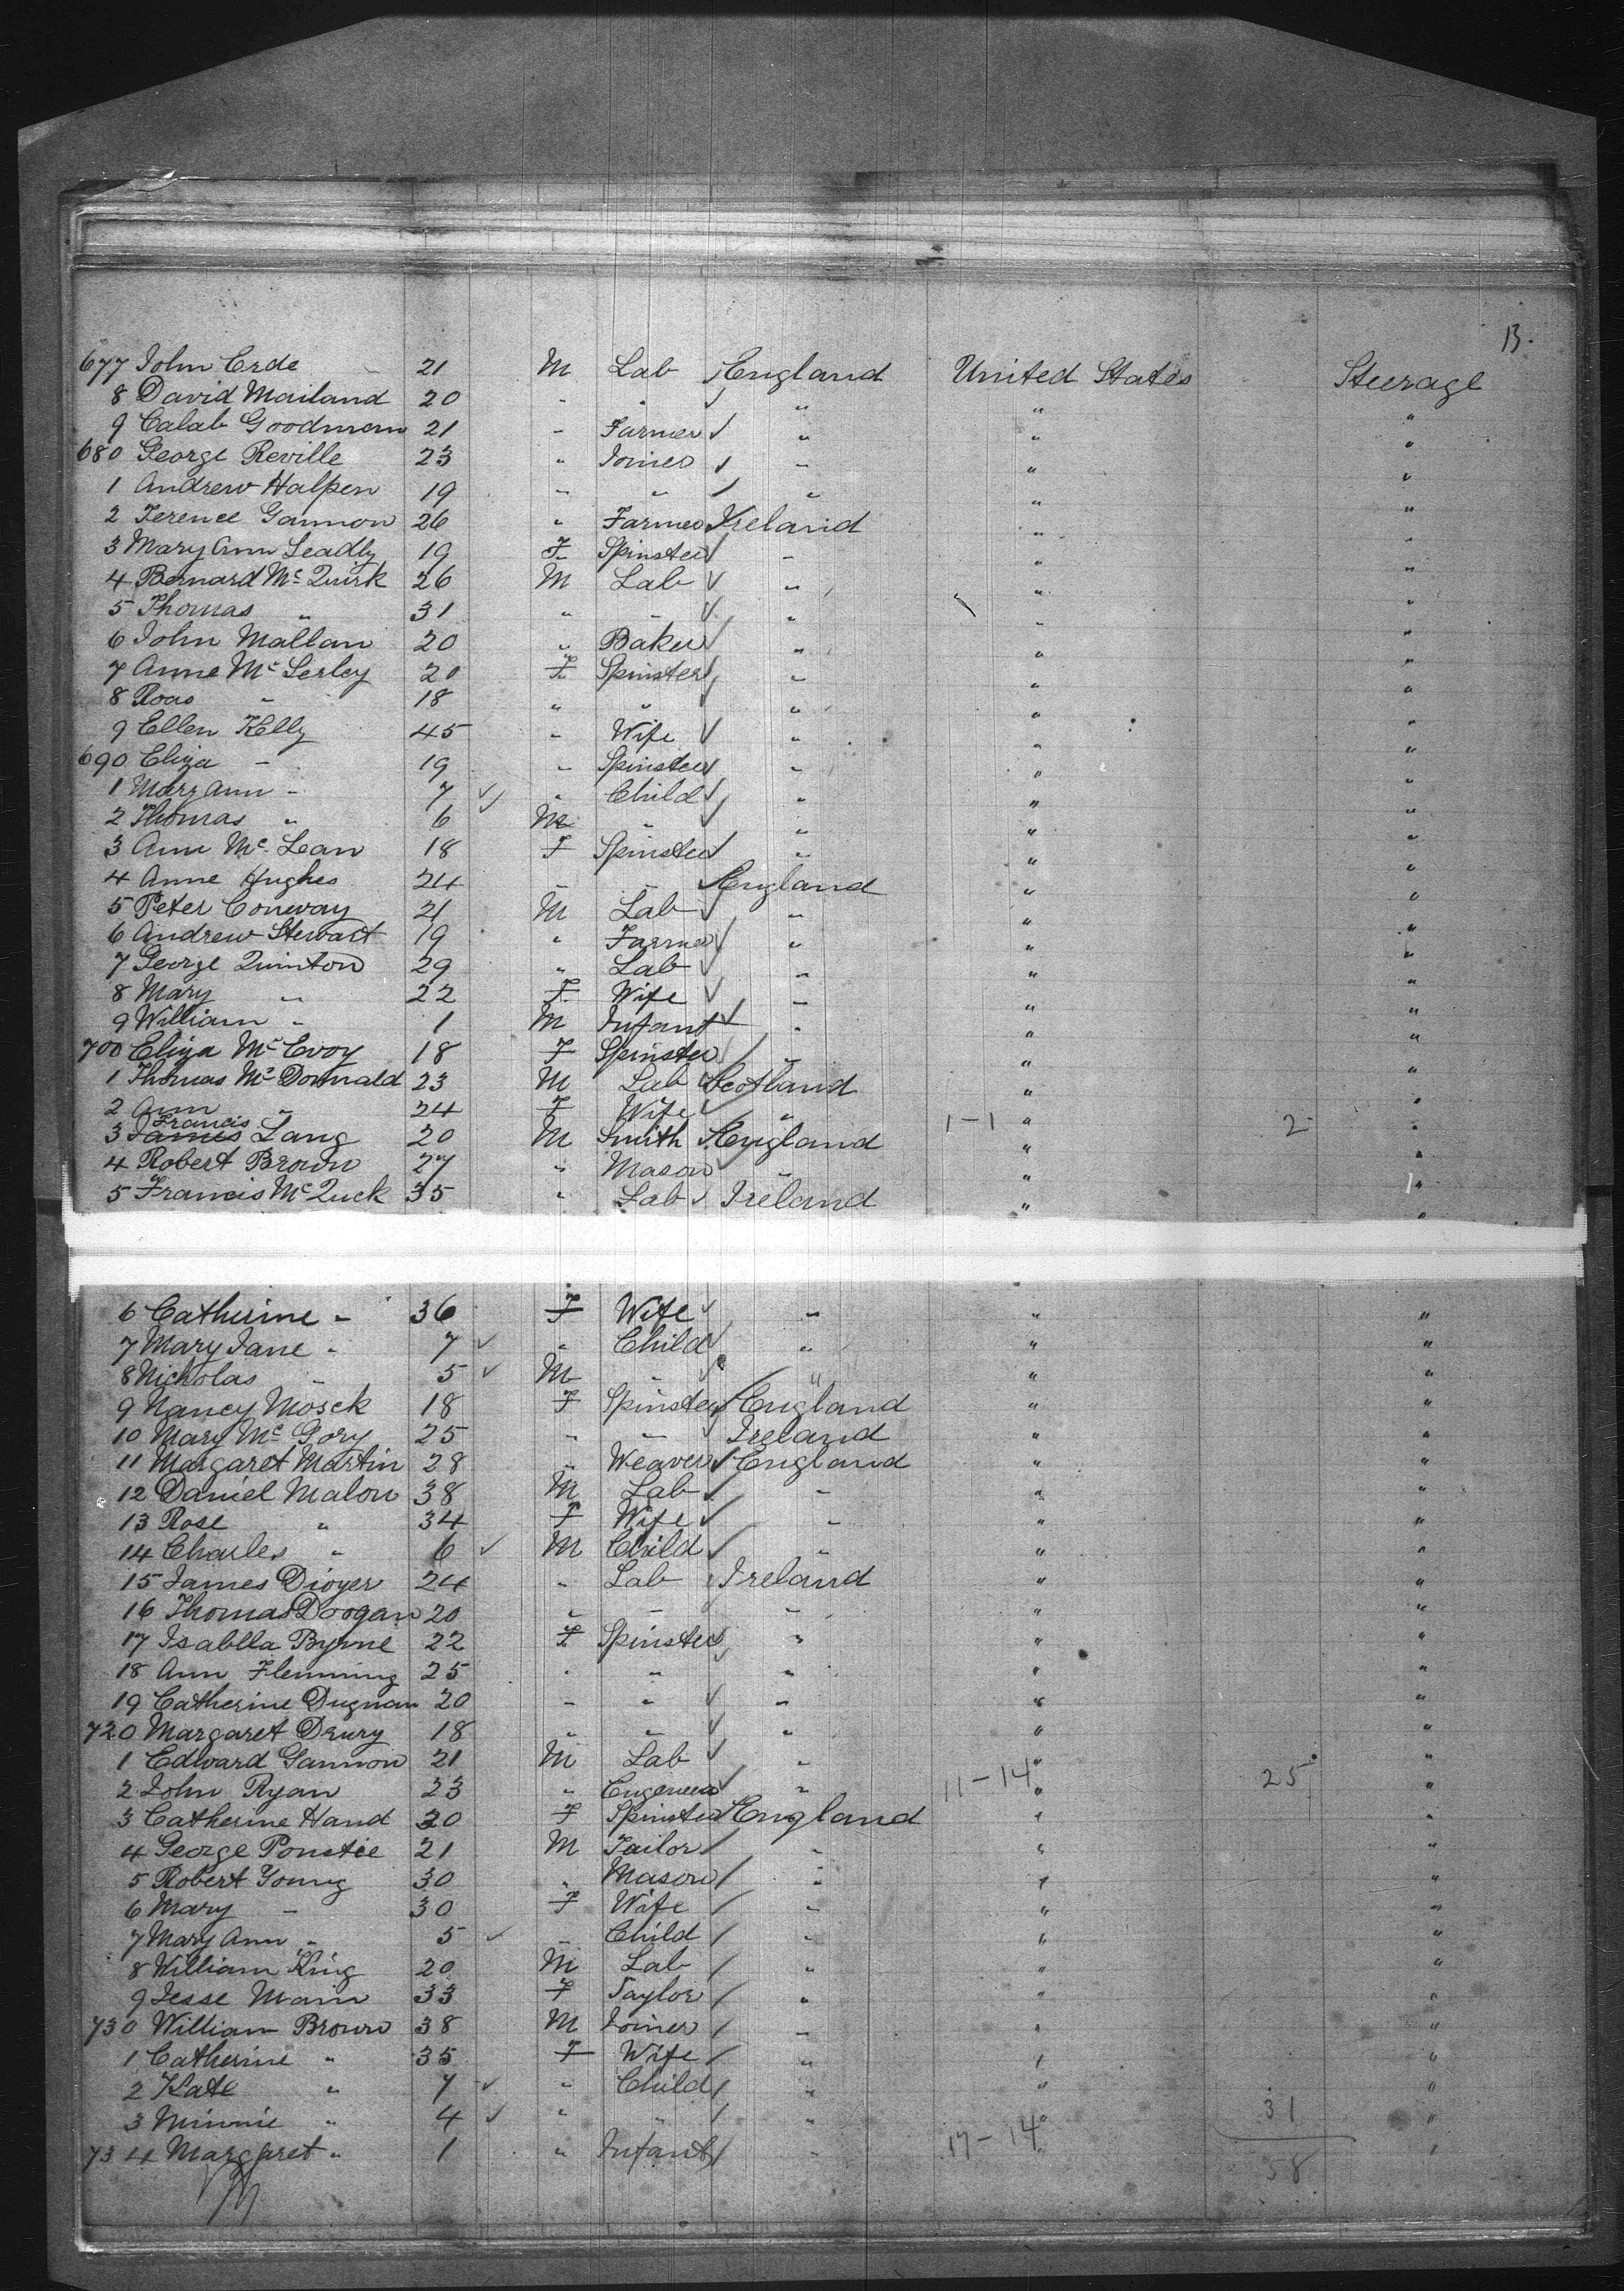 13.
677 John Erde 21 M Lab England United States Steerage
8 David Mailand 20 " " " " "
9 Calab Goodman 21 " Farmer " " "
680 George Reville 23 " Joiner " " "
1 Andrew Halpen 19 " " " " "
2 Terence Gannon 26 " Farmer Ireland " "
3 Mary Ann Leadly 19 F Spinster " " "
4 Bernard Mc Quirk 26 M Lab " " "
5 Thomas " 31 " " " " "
6 John Mallan 20 " Baker " " "
7 Anne Mc Serley 20 F Spinster " " "
8 Roas " 18 " " " " "
9 Ellen Kelly 45 " Wife " " "
690 Eliza " 19 " Spinster " " "
1 Mary Ann " 7 " Child " " "
2 Thomas " 6 M " " " "
3 Ann Mc Lean 18 F Spinster " " "
4 Anne Hughes 24 " " England " "
5 Peter Conway 21 M Lab " " "
6 Andrew Stewart 19 " Farmer " " "
7 George Quinton 29 " Lab " " "
8 Mary " 22 F Wife " " "
9 William " 1 M Infant " " "
700 Eliza Mc Evoy 18 F Spinster " " "
1 Thomas Mc Donnald 23 M Lab Scotland " "
2 Ann " 24 F Wife " " "
3 James Francis Lang 20 M Smith England 1-1 " 2 "
4 Robert Brown 27 " Mason " " "
5 Francis Mc Quck 35 " Lab Ireland " "
6 Catherine " 36 F Wife " " "
7 Mary Jane " 7 " Child " " "
8 Nicholas " 5 M " " " "
9 Nancy Mosck 18 F Spinster England " "
10 Mary Mc Gory 25 " " Ireland " "
11 Margaret Martin 28 " Weaver England " "
12 Daniel Malon 38 M Lab " " "
13 Rose " 34 F Wife " " "
14 Charles " 6 M Child " " "
15 James Dioyer 24 " Lab Ireland " "
16 Thomas Doogan 20 " " " " "
17 Isablla Byrne 22 F Spinster " " "
18 Ann Flemming 25 " " " " "
19 Catherine Dugnan 20 " " " " "
720 Margaret Drury 18 " " " " "
1 Edward Gannon 21 M Lab " " "
2 John Ryan 23 " Engeneer " 11-14 " 25 "
3 Catherine Hand 20 F Spinster England " "
4 George Poustie 21 M Tailor " " "
5 Robert Young 30 " Mason " " "
6 Mary " 30 F Wife " " "
7 Mary Ann " 5 " Child " " "
8 William King 20 M Lab " " "
9 Jesse Main 33 F Taylor " " "
730 William Brown 38 M Joiner " " "
1 Catherine " 35 F Wife " " "
2 Kate " 7 " Child " " "
3 Minnie " 4 " " " " 31 "
734 Margaret " 1 " Infant " 17-14 " "
58